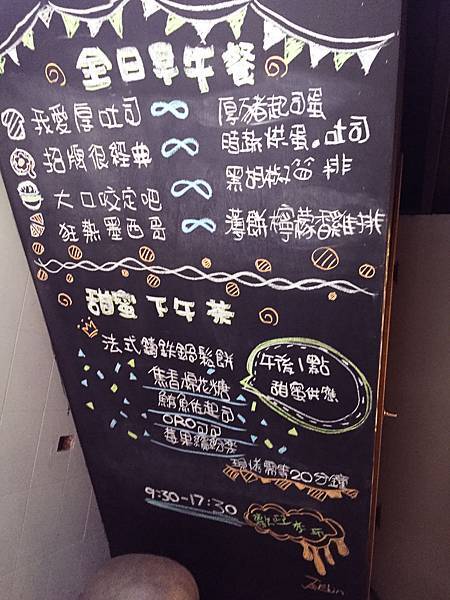 全日早午餐
我愛厚吐司 厚豬起司蛋
招牌很經典 暗熱烘蛋.吐司
大口咬定吧 黑胡椒 排
狂熱墨西哥 薄餅檸檬香雞排
甜蜜下午茶
法式鑄鐵鍋鬆餅
焦香爆花糖
鮪魚佐起司
ORO可可
莓果繽紛樂
午後1點
甜蜜供應
現烤需等20分鐘
9:30-17:30